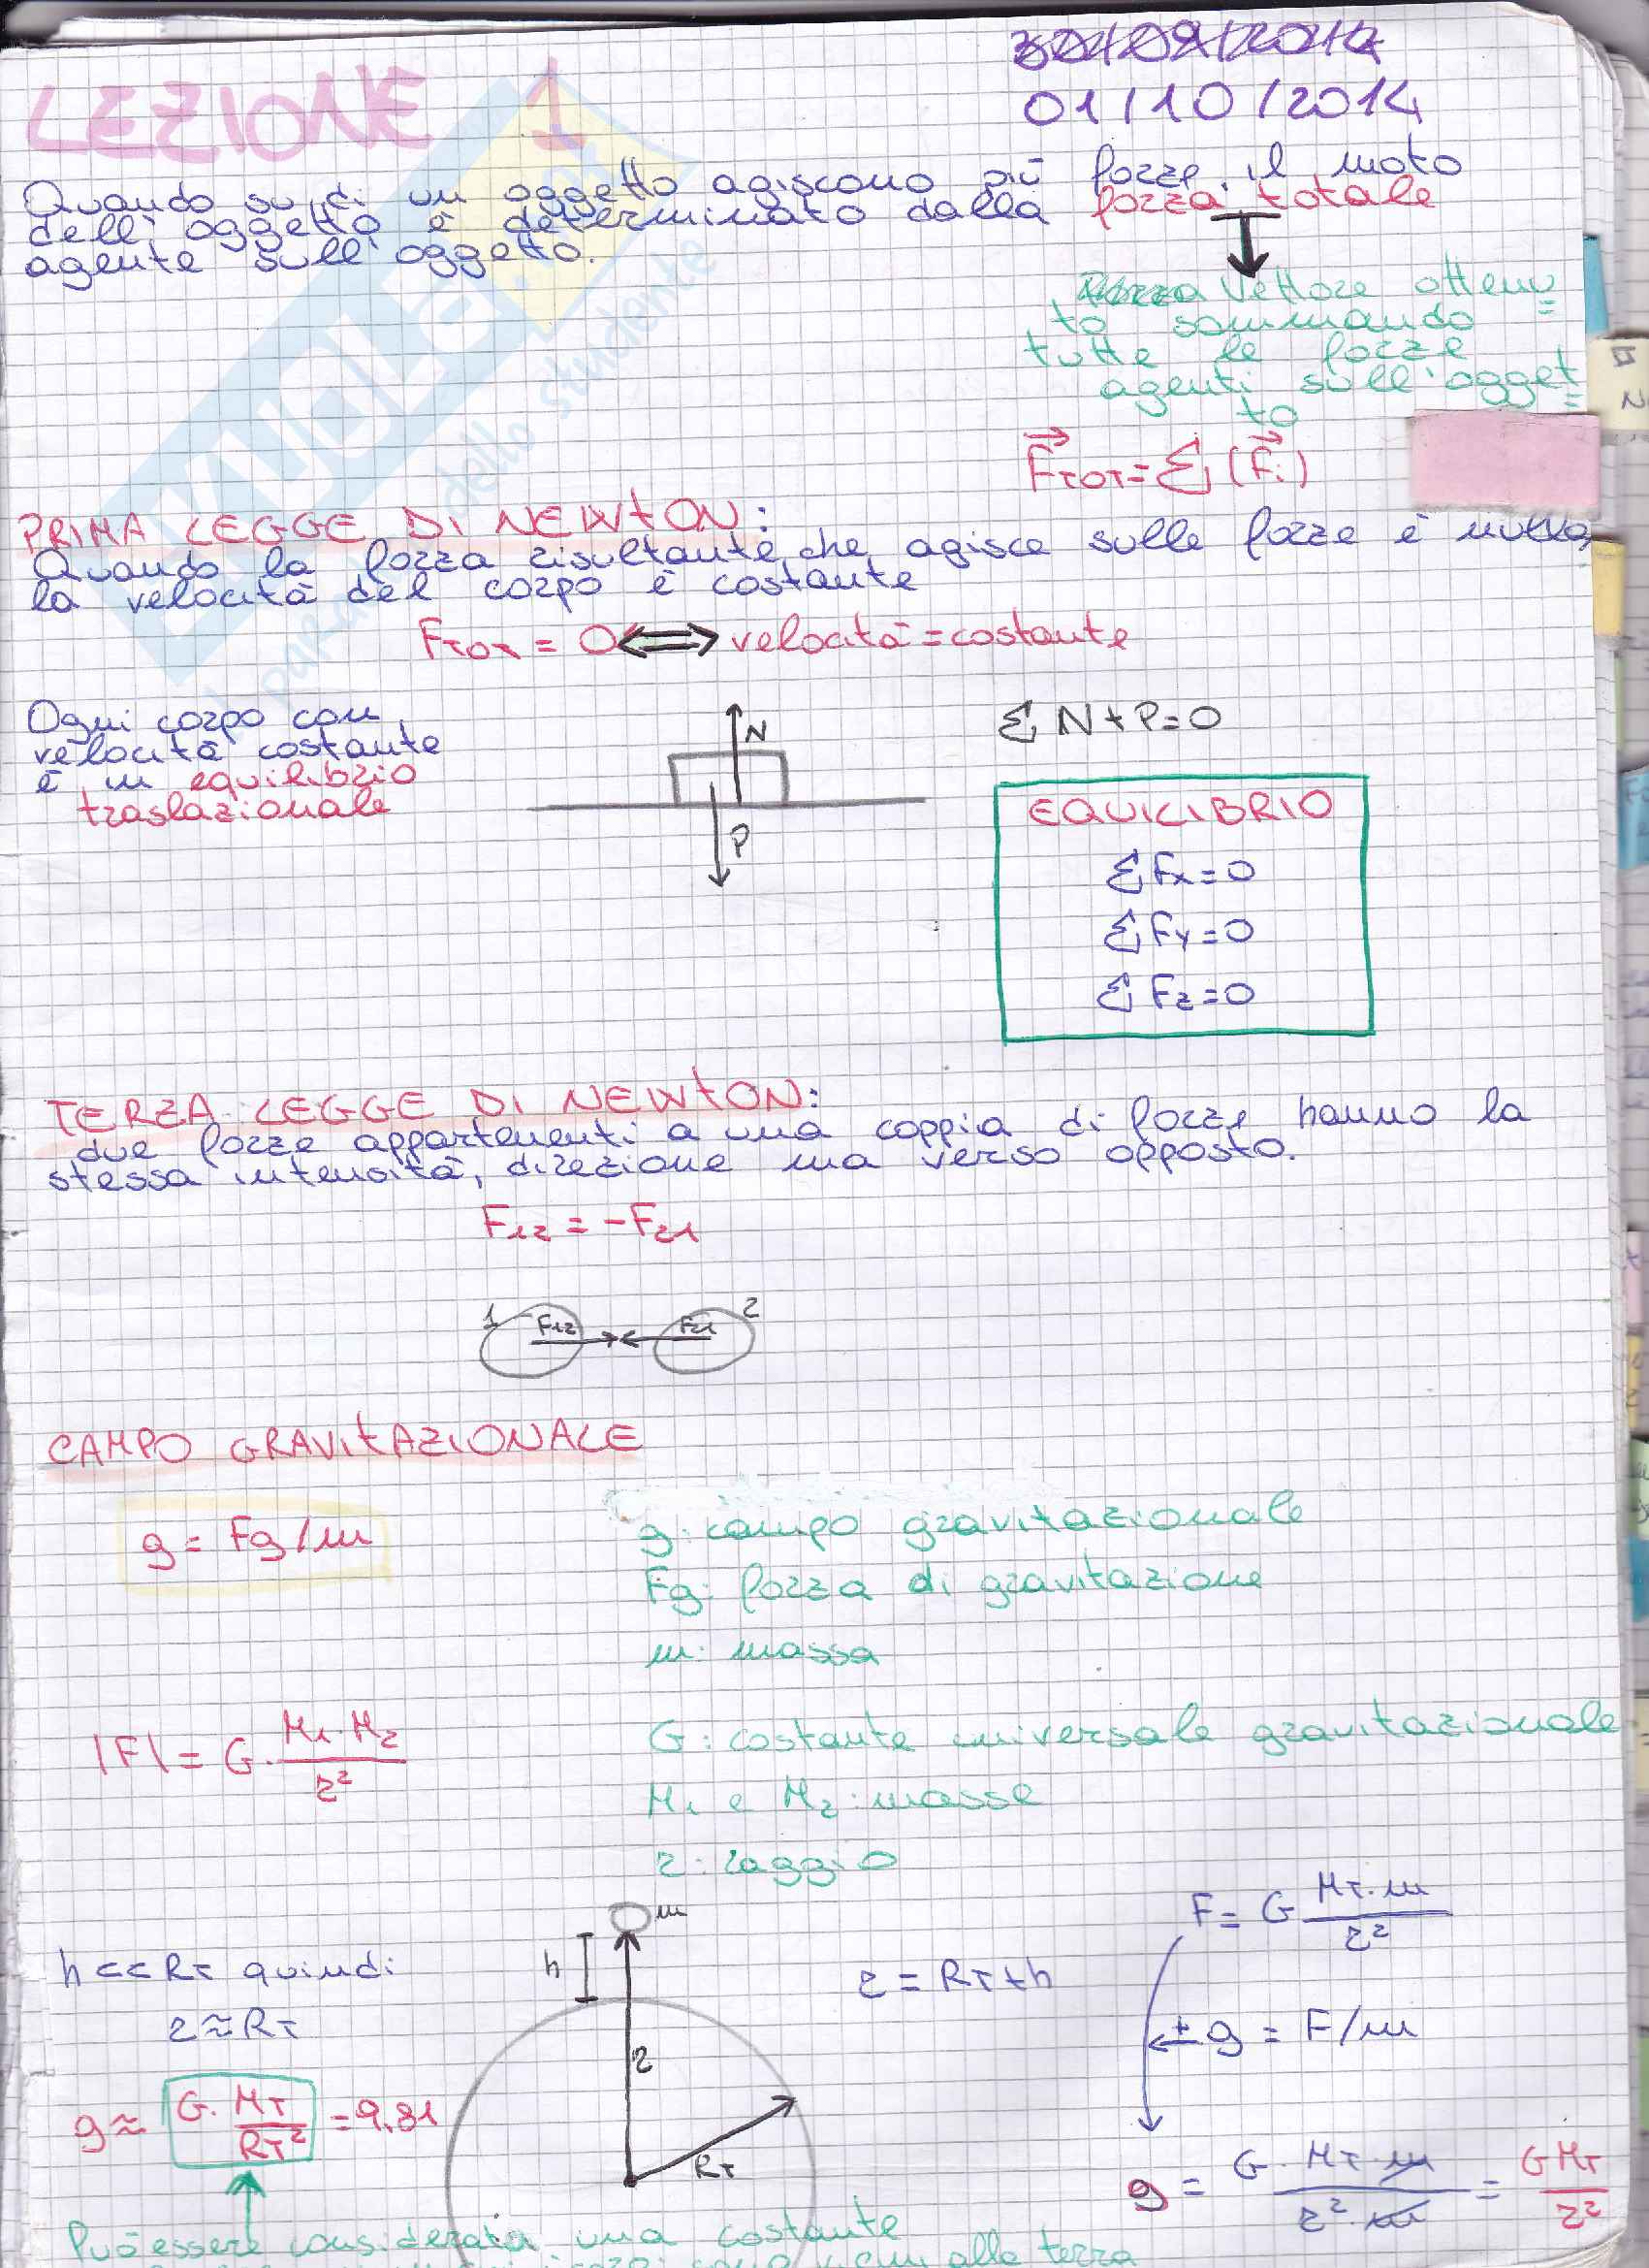 30/09/2014
LEZIONE 1
01/10/2014
Quando su di un oggetto agiscono più forze, il moto
dell'oggetto è determinato dalla forza totale
agente sull'oggetto.
Vettore ottenu=
to sommando
tutte le forze
agenti sull'ogget=
to
F⃗TOT = Σ (F⃗i)
PRIMA LEGGE DI NEWtON:
Quando la forza risultante che agisce sulle forze è nulla,
la velocità del corpo è costante
FTOT = 0 ⟺ velocità = costante
Ogni corpo con
velocità costante
è in equilibrio
traslazionale
N
P
Σ N + P = 0
EQUILIBRIO
Σ Fx = 0
Σ Fy = 0
Σ Fz = 0
TERZA LEGGE DI NEWtON:
due forze appartenenti a una coppia di forze hanno la
stessa intensità, direzione ma verso opposto.
F12 = -F21
1 F12 F21 2
CAMPO GRAVItAZIONALE
g = Fg/m
g: campo gravitazionale
Fg: forza di gravitazione
m: massa
|F| = G · M1·M2 / r²
G: costante universale gravitazionale
M1 e M2: masse
r: raggio
h << RT quindi
r ≈ RT
g ≈ G · MT / RT² = 9.81
m
h
r
RT
r = RT + h
F = G MT·m / r²
± g = F/m
g = G · MT · m / r² · m = GMT / r²
Può essere considerata una costante
alla terra